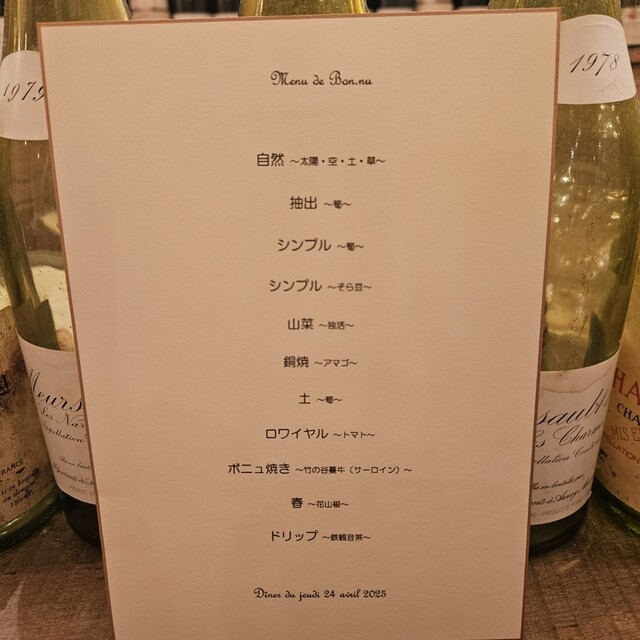 Menu de Bon.nu
自然 ～太陽・空・土・草～
抽出 ～筍～
シンプル ～筍～
シンプル ～そら豆～
山菜 ～独活～
銅焼 ～アマゴ～
土 ～筍～
ロワイヤル ～トマト～
ボニュ焼き ～竹の谷蔓牛（サーロイン）～
春 ～花山椒～
ドリップ ～鉄観音茶～
Dîner du jeudi 24 avril 2025
1979
1978
Meurs
Les Nar
Appellation
FRANCE
Les Charm
CHA